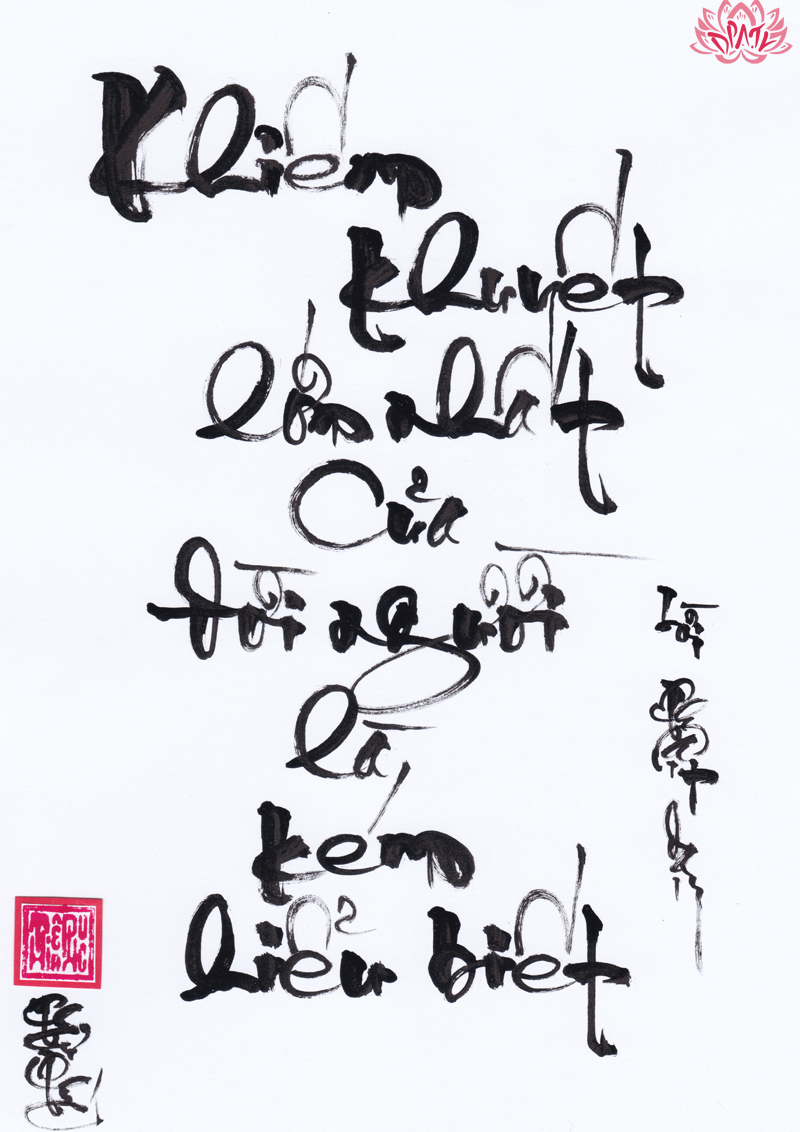 Khiếm
khuyết
lớn nhất
của
đời người
là
kém
hiểu biết
Lời
Phật
dạy